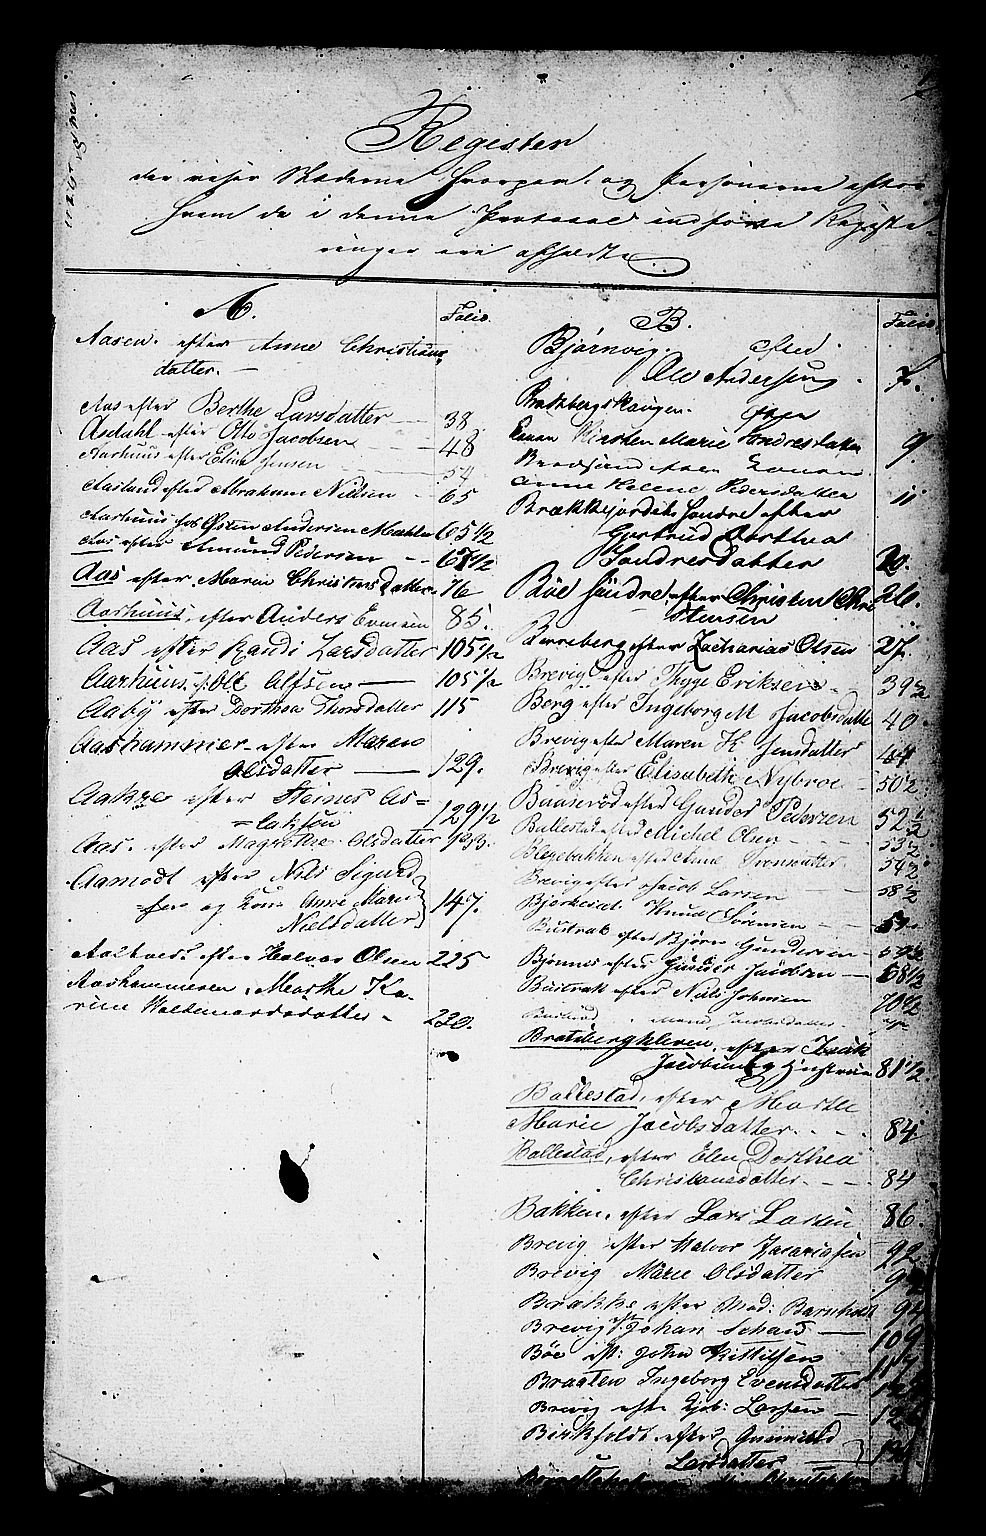 Register
der viser Stæderne hvorpaa og Personerne efter
hvem de i denne Protocol indførte Registe-
ringer ere afholdte.
A.
Folio.
Aasen. efter Anne Christians
datter. —
Aas efter Berthe Larsdatter — 38
Asdahl efter Otto Jacobsen 48
Aarhuus efter Eline Jensen 54
Aasland efter Abraham Nielsen - 65
Aarhuus hos Østen Andersen 65 1/2
Aas efter Amund Pedersen - 67 1/2
Aas efter Maria Christensdatter 76
Aarhuus, efter Anders Evensen 85.
Aas efter Randi Larsdatter 105 1/2
Aarhuus. f: Ole Alfsen — 105 1/2
Aaby efter Dorthea Thorsdatter 115
Aashammer - efter Maren
Olsdatter — 129.
Aakre efter Steiner As=
=laksøn 129 1/2
Aas. efter Magrethe Olsdatter 133.
Aamodt efter Nils Sigurd
=sen og Kone Anne Marie
Nielsdatter 147.
efter Halvor Olsen 225
Aashammeren, Marthe Ka-
rine Waldemarsdatter - 230.
B.
Folio
Bjørnvig. efter
Ole Andersen. 7.
Brækbergshaugen.
Konen Kirsten Marie Andresdatter 9.
Konen
Anne Helene Pedersdatter 11
Brækkejordet Søndre efter
Gertrud Dorthea
Sondresdatter 20.
Böe Søndre efter Christen Chri
stensen 26.
Berreberg efter Zacharias Olsen 27.
Brevig efter Thyge Eriksen - 39 1/2
Berg efter Ingeborg M Jacobsdatte 40
Brevig efter Maren K. Jensdatter 44
Brevig efter Elisabeth Nybroe - 50 1/2
Baaserød efter Gunder Pedersen 52 1/2
Ballestad efter Michel Olsen - - - 53 1/2
Blegebakken efter Anne 54 1/2
Brevig efter Jacob Larsen 58 1/2
Bjerketet. Knud Sørensen - -
Bustrak efter Bjørn Gundersen
Bjønnes efter Gunder Jacobsen — 68 1/2
Bustrak efter Niels Johnsen 70 1/2
Jacobsdatter -
Bratsbergkleven, efter Isack
Jacobsen og Hustrue 81 1/2.
Ballestad, efter Marthe
Marie Jacobsdatter. - . - . 84
Ballestad, efter Elen Dorthea
Christensdatter - - - 84
Bakken, efter Lars Larsen 86.
Brevig efter Halvor Zacariasen 92
Brevig Marie Olsdatter
Brække efter Mad: Barnholt 94
Brevig Johan Schau — 109
Böe eft: John Kittilsen 117
Braaten Ingeborg Evensdatter
Brevig efter Larsen —
Birkfoldt efter Gunnild
Larsdatter —